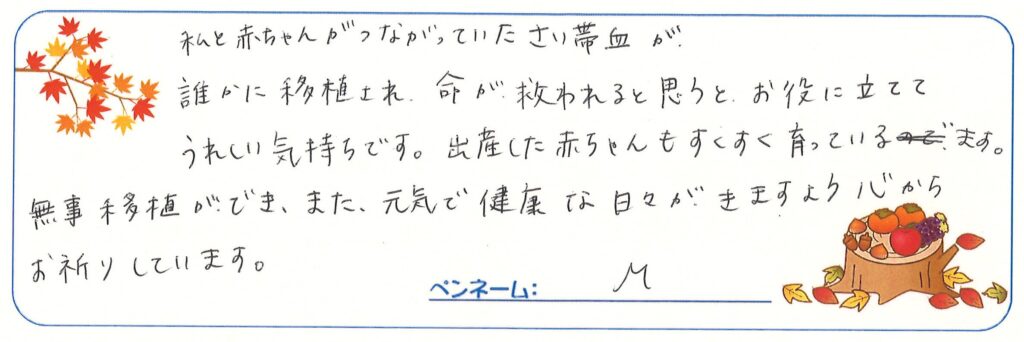 私と赤ちゃんがつながっていたさい帯血が、
誰かに移植され、命が救われると思うと、お役に立てて
うれしい気持ちです。出産した赤ちゃんもすくすく育っているます。
無事移植ができ、また、元気で健康な日々がきますよう心から
お祈りしています。
ペンネーム: M